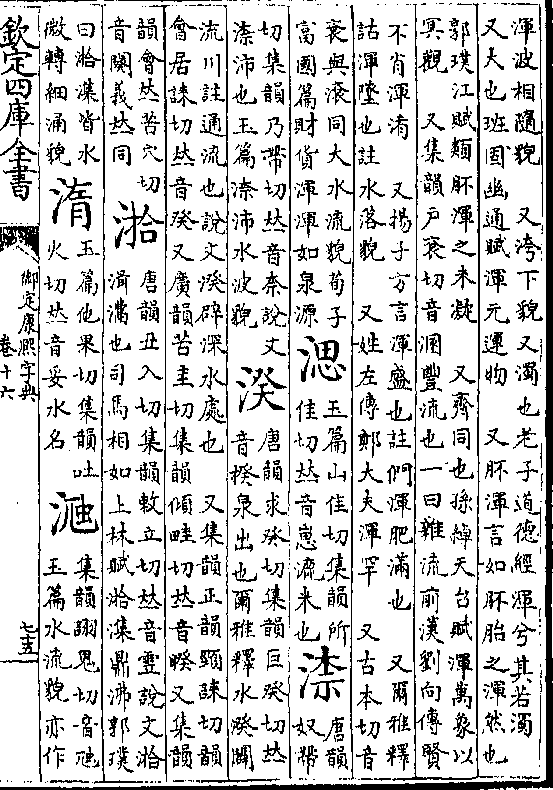 渾波相隨貌　又洿下貌又濁也老子道德經渾兮其若濁
又大也班固幽通賦渾元運物　又胚渾言如胚胎之渾然也
郭璞江賦類胚渾之未凝　又齊同也孫綽天台賦渾萬象以
冥觀　又集韻戸衮切音溷豐流也一曰雜流前漢劉向傳賢
不肖渾淆　又揚子方言渾盛也註們渾肥滿也　又爾雅釋
詁渾墜也註水落貌　又姓左傳鄭大夫渾罕　又古本切音
衮與滚同大水流貌荀子
富國篇財貨渾渾如泉源
㴓
玉篇山佳切集韻所
佳切𠀤音崽流米也
渿
唐韻
奴帶
切集韻乃帶切𠀤音奈說文
渿沛也玉篇渿沛水波貌
湀
唐韻求癸切集韻巨癸切𠀤
音揆泉出也爾雅釋水湀闢
流川註通流也說文湀辟深水處也　又集韻正韻頸誄切韻
會居誄切𠀤音癸又廣韻苦圭切集韻傾畦切𠀤音睽又集韻
韻會𠀤苦穴切
音闋義𠀤同
湁
唐韻丑入切集韻敕立切𠀤音霫說文湁
湒㵫也司馬相如上林賦湁潗鼎沸郭璞
曰湁潗皆水
微轉細涌貌
玉篇他果切集韻吐
火切𠀤音妥水名
集韻詡鬼切音虺
玉篇水流貌亦作
欽定四庫全書
御定康熙字典
卷十六
七五